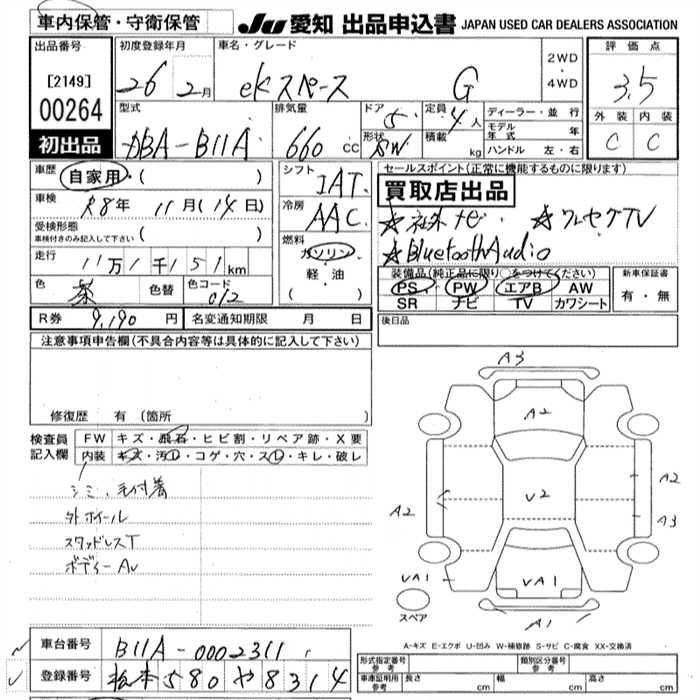 車内保管・守衛保管
JU 愛知 出品申込書 JAPAN USED CAR DEALERS ASSOCIATION
出品番号
[2149]
00264
初出品
初度登録年月
26年 2月
車名・グレード
ekスペース G
2WD
・
4WD
評価点
3.5
外装 内装
C C
型式
DBA-B11A
排気量
660 cc
ドア
5
形状
SW
定員
4人
積載
kg
ディーラー・並行
モデル年式 年
ハンドル 左・右
車歴 自家用・( )
車検 R8年 11月(14日)
受検形態
車検付きのみ記入して下さい ( )
走行 11万1千151km
色 茶 色替 色コード 012
シフト
IAT
冷房
AAC
燃料
ガソリン
軽・油
セールスポイント(正常に機能するものに限ります)
買取店出品
☆社外ナビ ☆ワンセグTV
☆BluetoothAudio
装備品(純正品に限り○をつけてください)
PS PW エアB AW
SR ナビ TV カワシート
新車保証書
有・無
R券 9,190 円 名変通知期限 月 日
後日品
注意事項申告欄(不具合内容等は具体的に記入して下さい)
修復歴 有 (箇所
検査員記入欄
FW キズ・飛石・ヒビ割・リペア跡・X要
内装 キズ・汚レ・コゲ・穴・スレ・キレ・破レ
シミ、毛付着
外ホイール
スタッドレスT
ボディーAv
A3
A2
V2
A2
A2
A3
VA1
VA1
A1
スペア
A-キズ E-エクボ U-凹み W-補修跡 S-サビ C-腐食 XX-交換済
車台番号 B11A-0002311
登録番号 松本580や8314
形式指定番号
参考
類別区分番号
参考
車庫証明用
参考
長さ cm 幅 cm 高さ cm